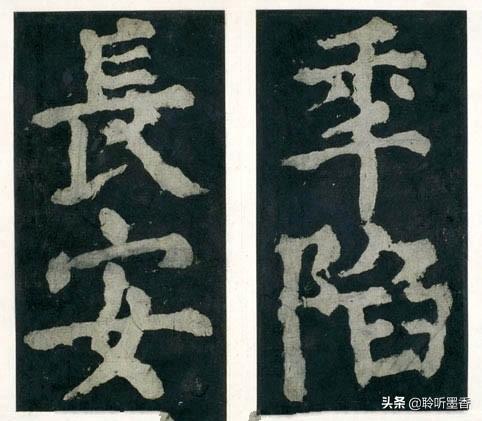 年陷
長安
头条 @聆听墨香